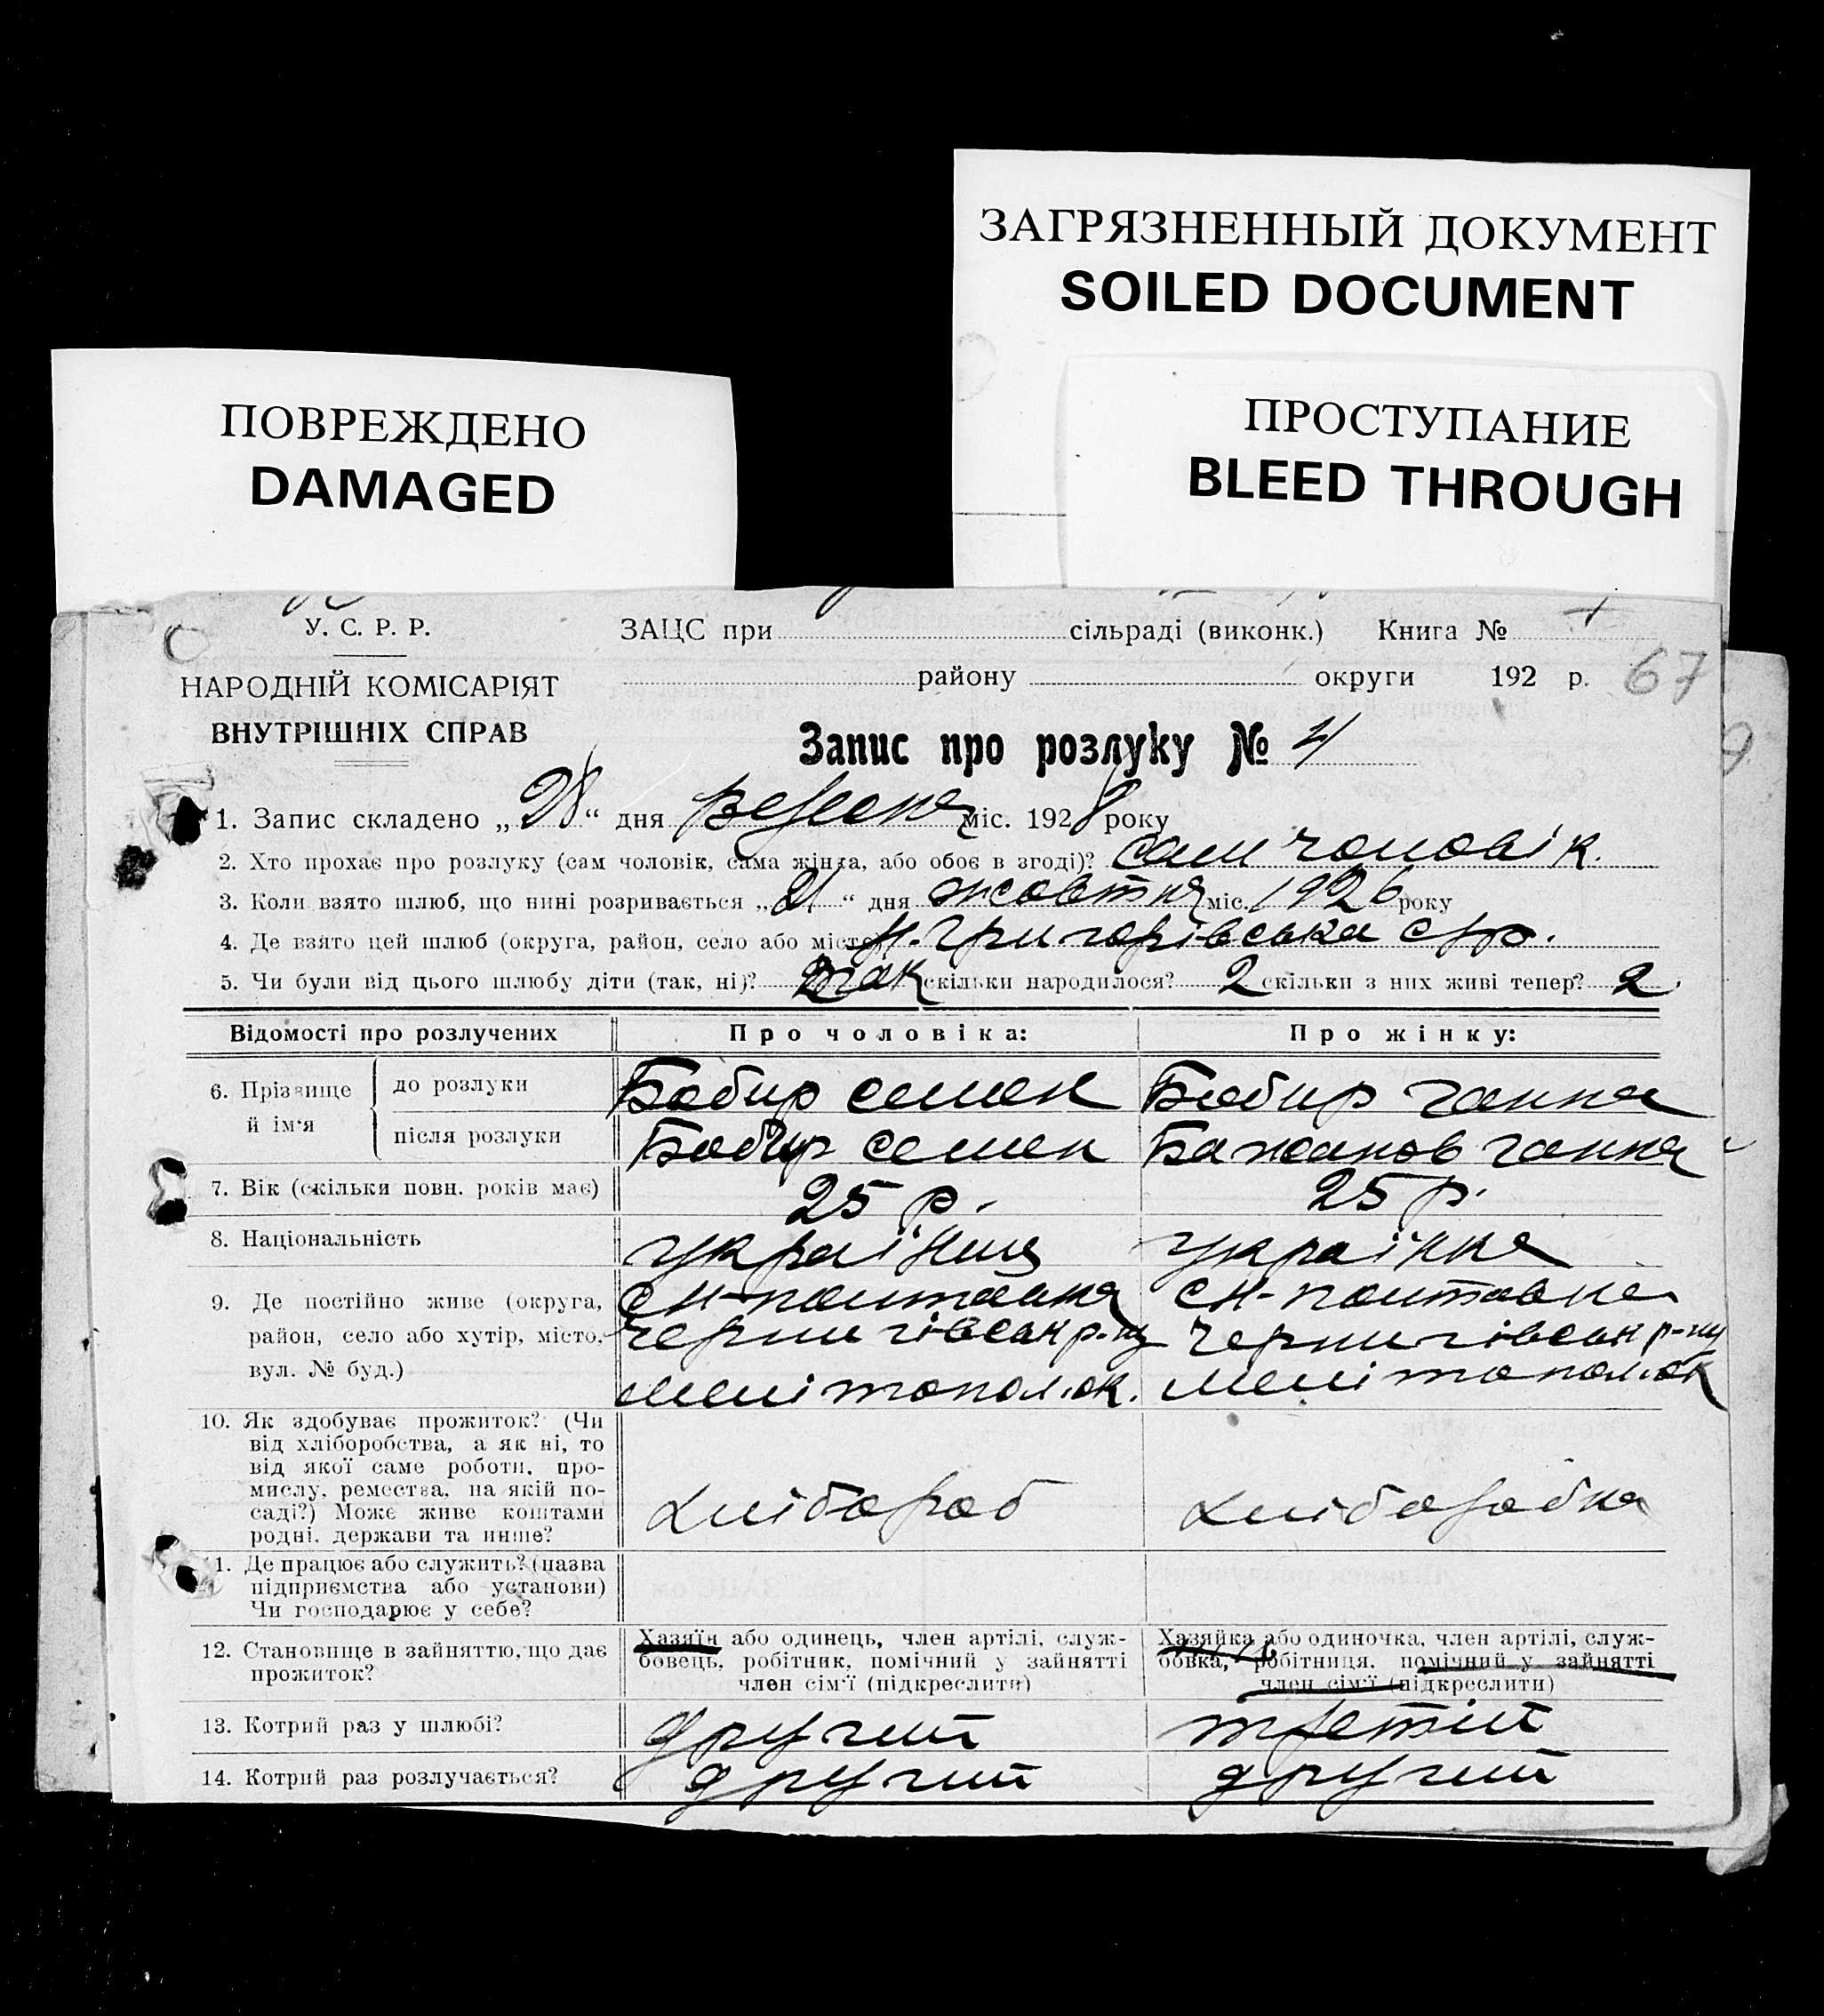 ЗАГРЯЗНЕННЫЙ ДОКУМЕНТ
SOILED DOCUMENT
ПОВРЕЖДЕНО
DAMAGED
ПРОСТУПАНИЕ
BLEED THROUGH
У. С. Р. Р.
НАРОДНІЙ КОМІСАРІЯТ
ВНУТРІШНІХ СПРАВ
ЗАЦС при сільраді (виконк.) Книга №
району округи 192 р. 67
Запис про розлуку № 4
1. Запис складено „28“ дня вересня міс. 1928 року
2. Хто прохає про розлуку (сам чоловік, сама жінка, або обоє в згоді)? сам чоловік.
3. Коли взято шлюб, що нині розривається „21“ дня жовтня міс. 1926 року
4. Де взято цей шлюб (округа, район, село або місто) Н. Григорівська с/р.
5. Чи були від цього шлюбу діти (так, ні)? так скільки народилося? 2 скільки з них живі тепер? 2.
Відомості про розлучених Про чоловіка: Про жінку:
6. Прізвище й ім'я до розлуки Бобир семен Бобир ганна
після розлуки Бобир семен Бажанов ганна
7. Вік (скільки повн. років має) 25 р. 25 р.
8. Національність українец українка
9. Де постійно живе (округа, район, село або хутір, місто, вул. № буд.)
с Н-полтавка с Н-полтавка
чернигівськ р-ну чернигівськ р-ну
мелітопол. ок. мелітопол. ок
10. Як здобуває прожиток? (Чи
від хліборобства, а як ні, то
від якої саме роботи, про-
мислу, ремества, на якій по-
саді?) Може живе коштами
родні, держави та инше?
хлібороб хліборобка
11. Де працює або служить? (назва
підприємства або установи)
Чи господарює у себе?
12. Становище в зайняттю, що дає
прожиток?
Хазяїн або одинець, член артілі, служ-
бовець, робітник, помічний у зайнятті
член сім'ї (підкреслити)
Хазяйка або одиночка, член артілі, служ-
бовка, робітниця, помічний у зайнятті
член сім'ї (підкреслити)
13. Котрий раз у шлюбі? другий третій
14. Котрий раз розлучається? другий другий